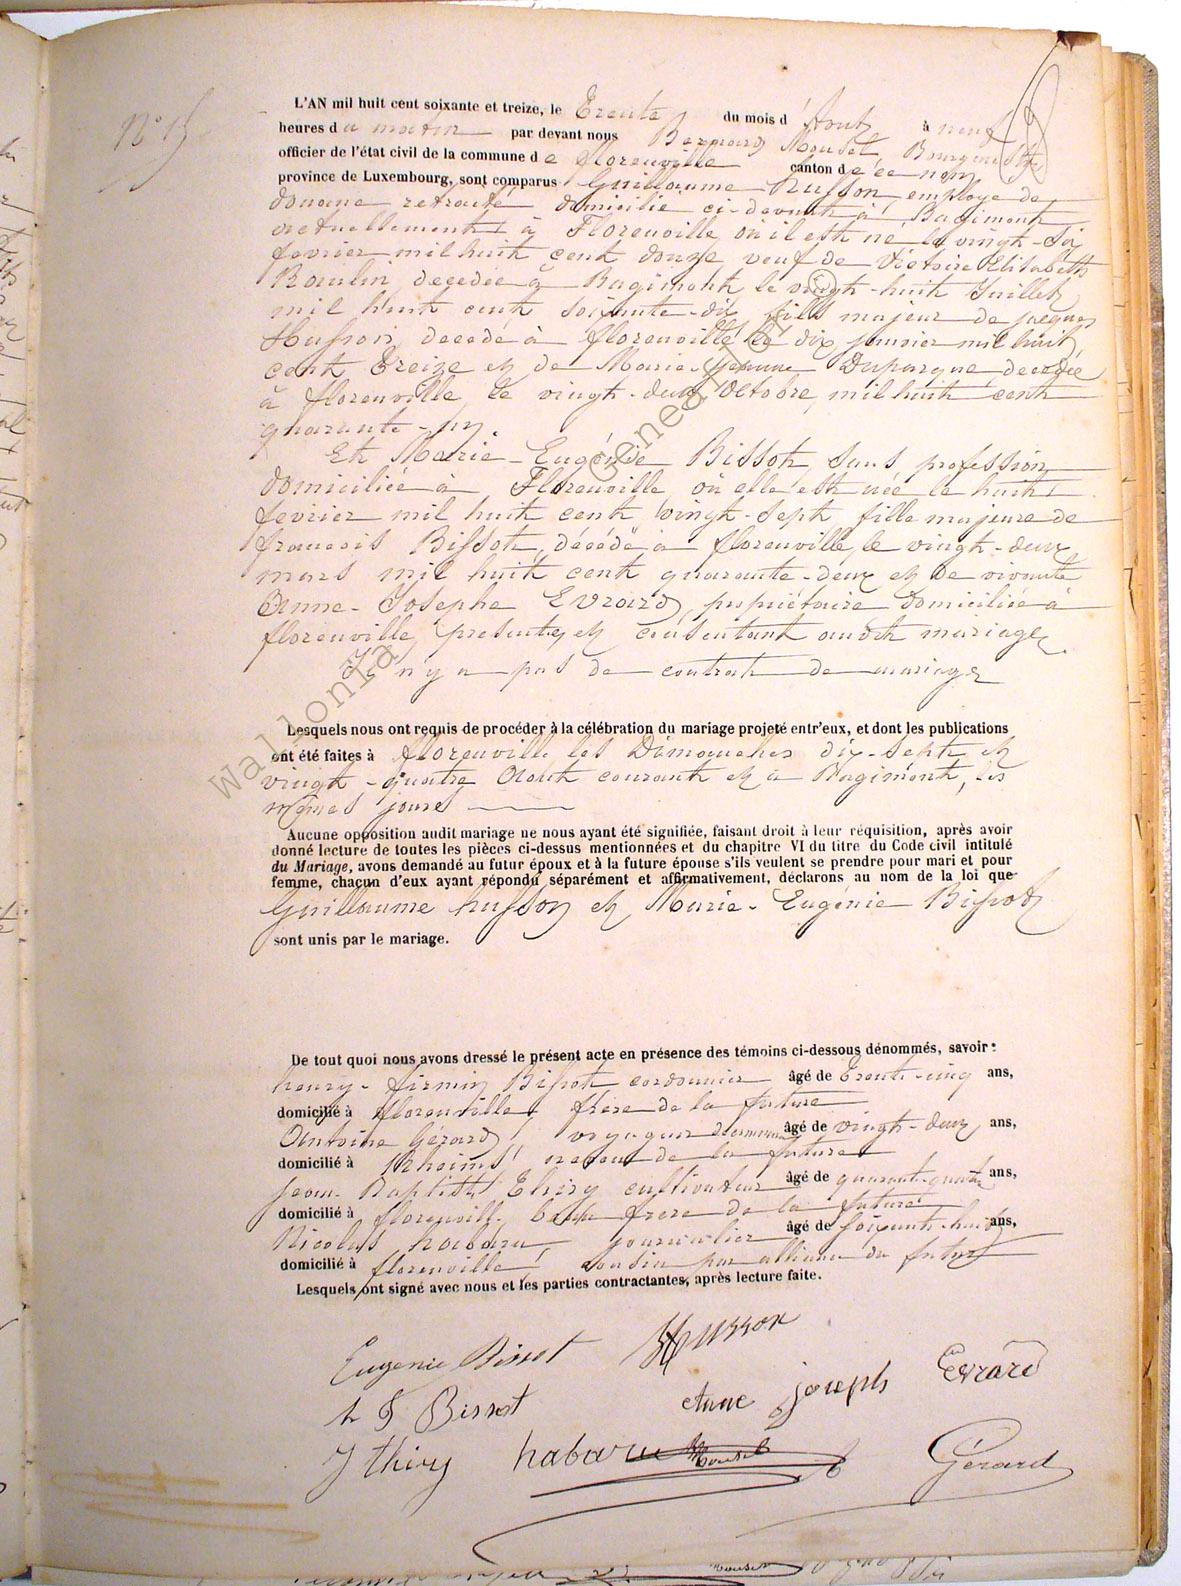 N° 15
L'AN mil huit cent soixante et treize, le Trente du mois d'Août à neuf
heures du matin par devant nous Bernard Mousel, Bourgmestre
officier de l'état civil de la commune de florenville canton de ce nom
province de Luxembourg, sont comparus Guillaume Husson, employé de
douane retraité domicilié ci-devant à Bagimont
actuellement à Florenville où il est né le vingt-six
fevrier mil huit cent douze veuf de Victoire Elisabeth
Raulin, decedée à Bagimont le vingt-huit Juillet
mil huit cent soixante-dix fils majeur de jacques
Husson, decedé à florenville le dix janvier mil huit
cent treize et de Marie-Jeanne Duparque decedée
à florenville, le vingt-deux Octobre, mil huit cent
quarante-un.
Et Marie-Eugénie Bissot, sans profession
domiciliée à Florenville où elle est née le huit
fevrier mil huit cent vingt-sept fille majeure de
francois Bissot, décédé à florenville, le vingt-deux
mars mil huit cent quarante-deux et de vivante
Anne-Josephe Evrard, propriétaire domiciliée à
florenville, presente, et consentant audit mariage
Il n'y a pas de contrat de mariage
Lesquels nous ont requis de procéder à la célébration du mariage projeté entr'eux, et dont les publications
ont été faites à florenville les Dimanches dix-sept et
vingt-quatre Août courant et à Bagimont, les
mêmes jours
Aucune opposition audit mariage ne nous ayant été signifiée, faisant droit à leur réquisition, après avoir
donné lecture de toutes les pièces ci-dessus mentionnées et du chapitre VI du titre du Code civil intitulé
du Mariage, avons demandé au futur époux et à la future épouse s'ils veulent se prendre pour mari et pour
femme, chacun d'eux ayant répondu séparément et affirmativement, déclarons au nom de la loi que
Guillaume husson et Marie-Eugénie Bissot
sont unis par le mariage.
De tout quoi nous avons dressé le présent acte en présence des témoins ci-dessous dénommés, savoir:
henry-firmin Bissot cordonnier âgé de trente-cinq ans,
domicilié à florenville, frère de la future
Antoine Gérard, voyageur de commerce âgé de vingt-deux ans,
domicilié à Rheims, neveu de la future
Jean-Baptiste Thiry cultivateur âgé de quarante-quatre ans,
domicilié à florenville beau frere de la future
Nicolas habaru, journalier âgé de soixante-huit ans,
domicilié à florenville, cousin par alliance du futur
Lesquels ont signé avec nous et les parties contractantes, après lecture faite.
Eugenie Bissot Husson
h F Bissot Anne joseph Evrard
J thiry habaru Mousel Gérard
Wallonia Genealogy ©